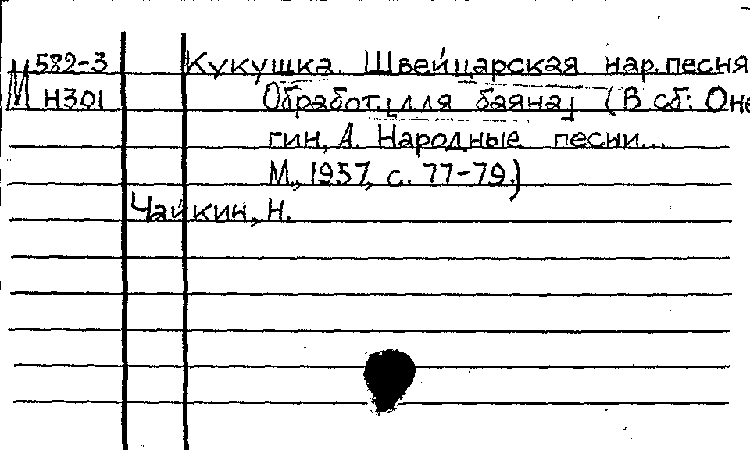 М 582-3 Кукушка. Швейцарская нар. песня
Н301 Обработ. [для баяна] (В сб: Оне
гин, А. Народные песни...
М., 1957, с. 77-79.)
Чайкин, Н.